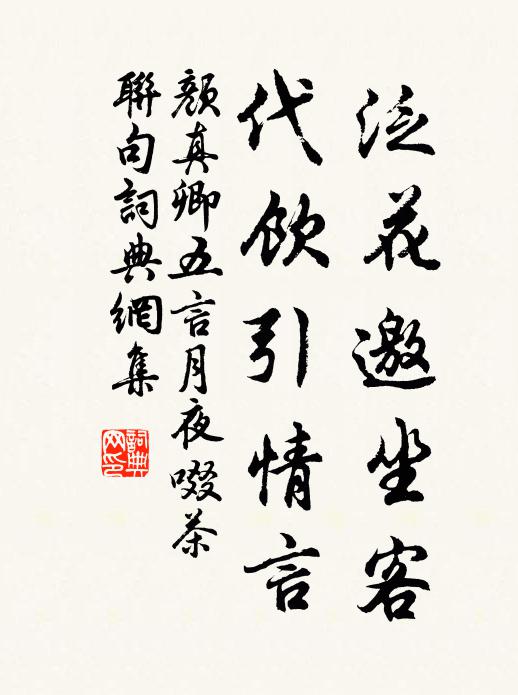 泛花邀坐客
代飲引情言
顏真卿五言月夜啜茶
聯句詞典網集
詞典网印